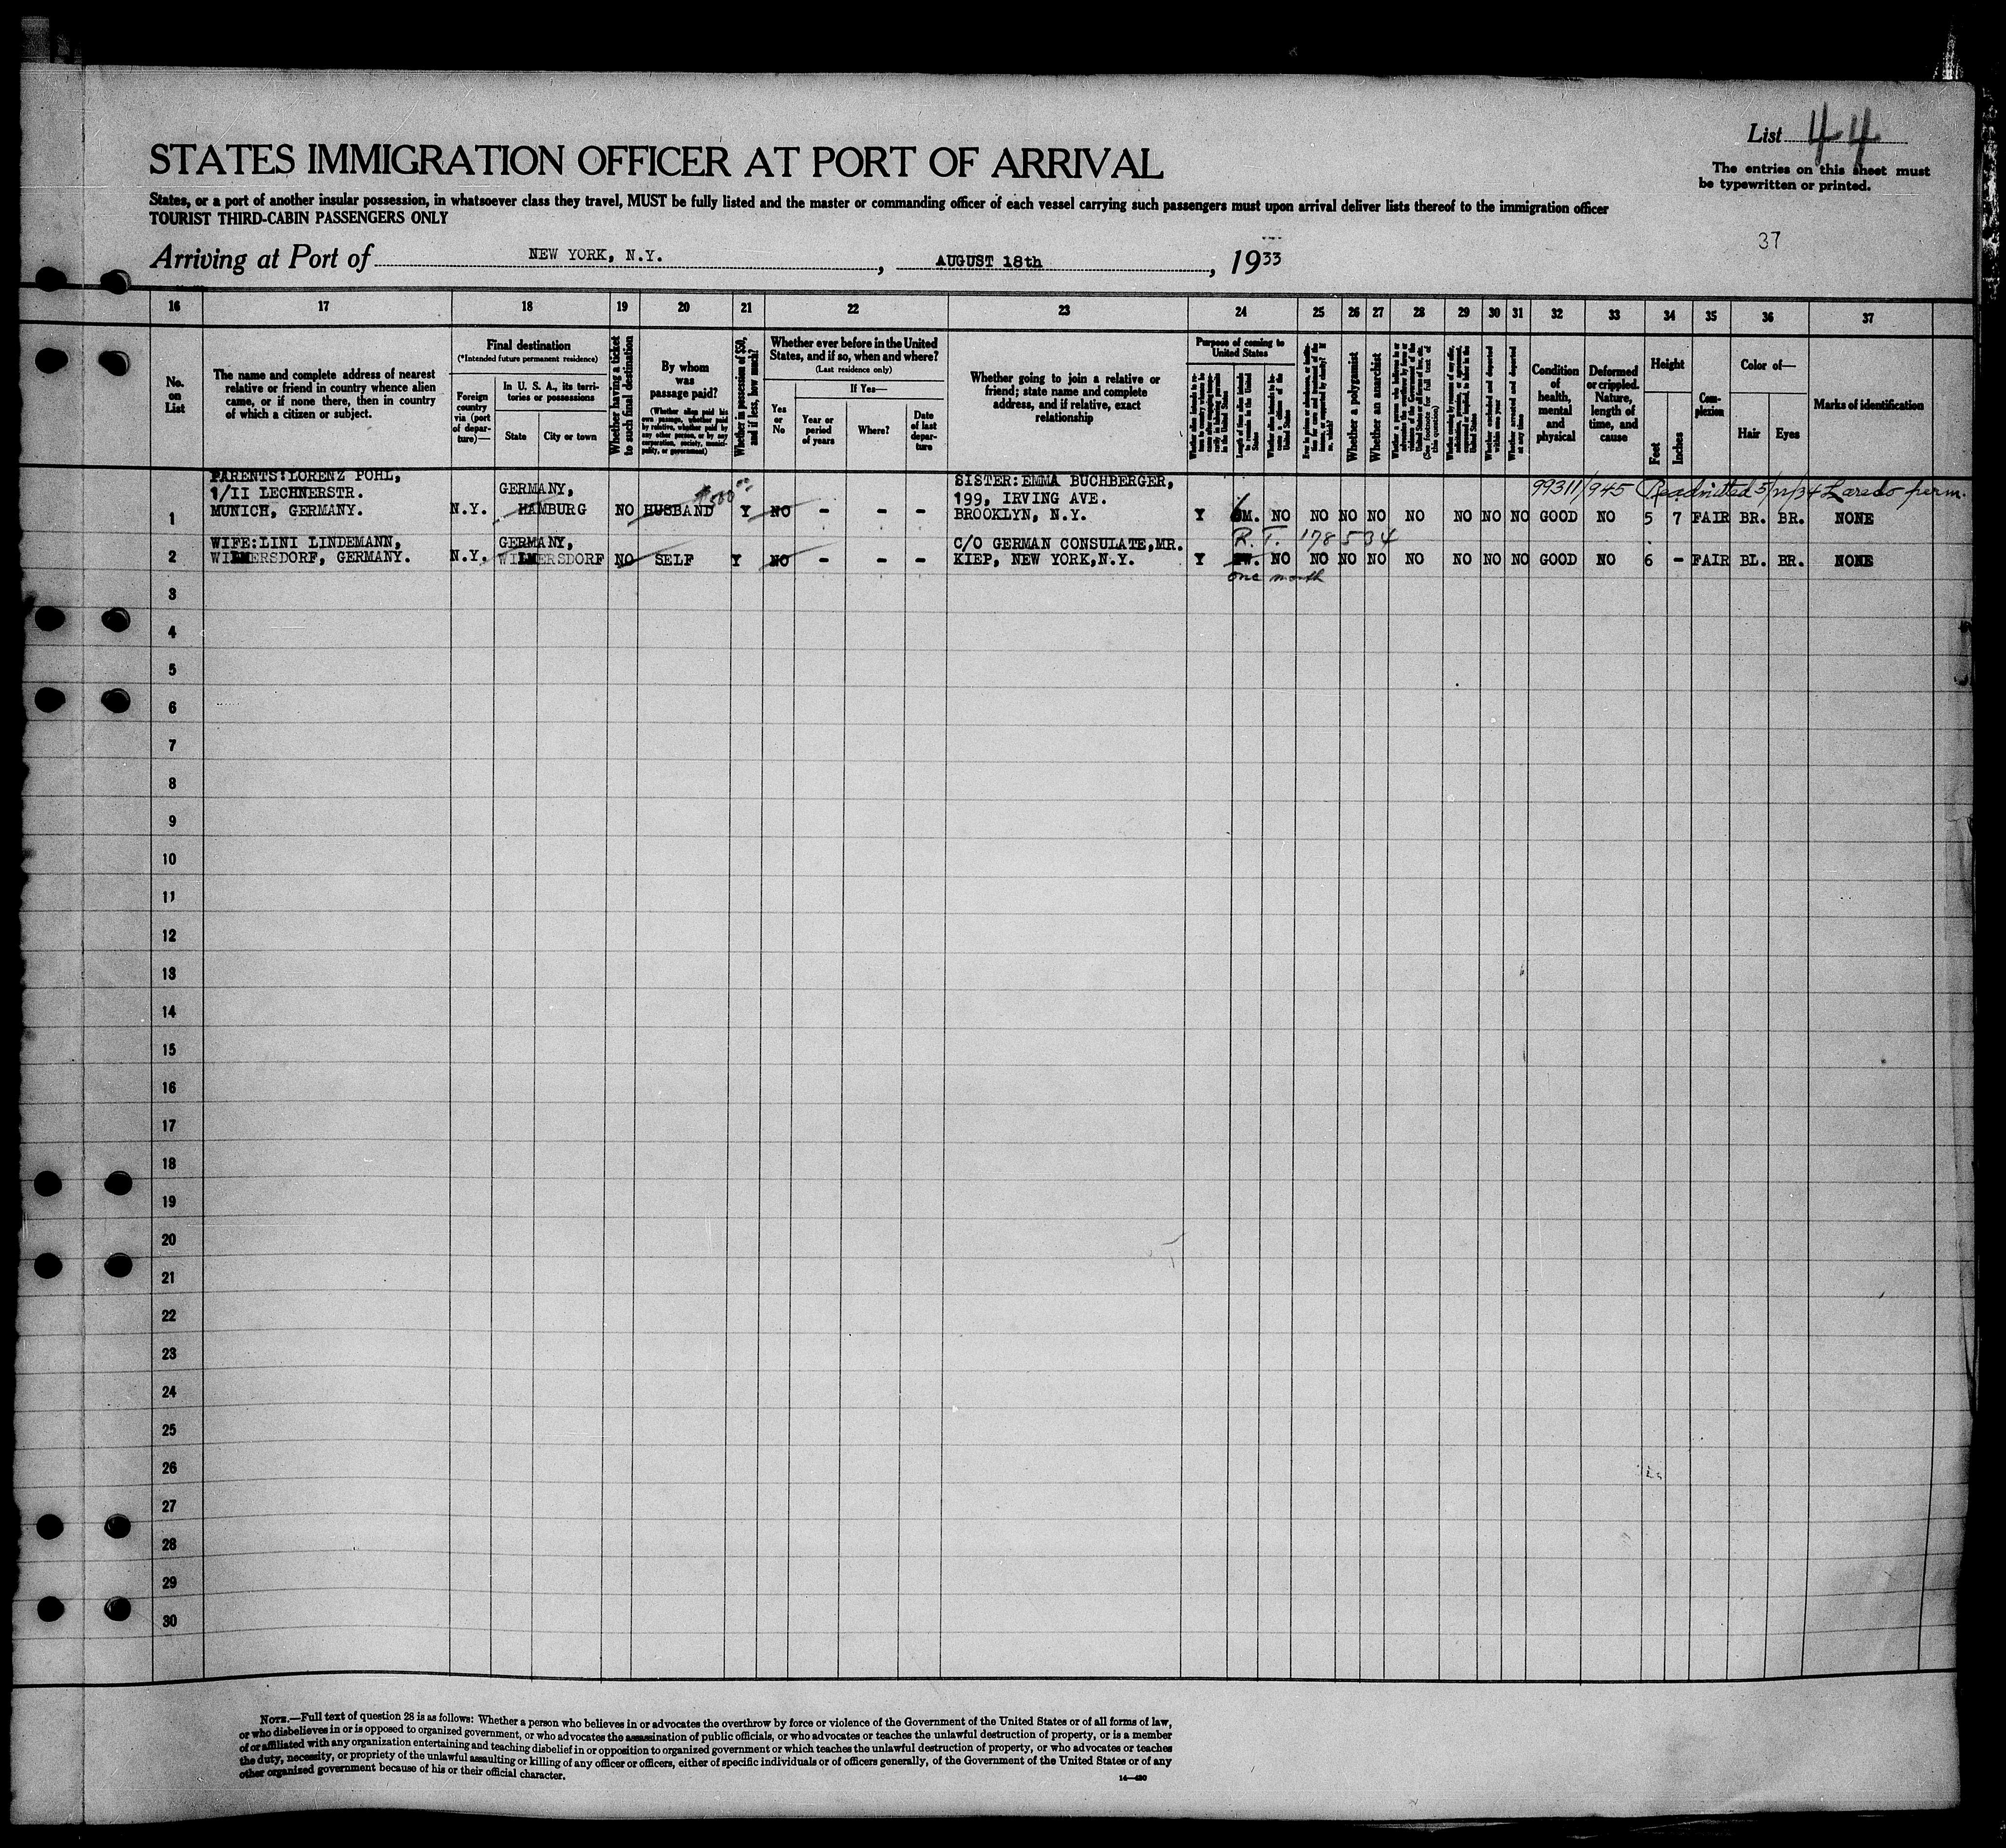 List 44
STATES IMMIGRATION OFFICER AT PORT OF ARRIVAL
The entries on this sheet must
be typewritten or printed.
States, or a port of another insular possession, in whatsoever class they travel, MUST be fully listed and the master or commanding officer of each vessel carrying such passengers must upon arrival deliver lists thereof to the immigration officer
TOURIST THIRD-CABIN PASSENGERS ONLY
37
Arriving at Port of NEW YORK, N.Y., AUGUST 18th, 1933
16 17 18 19 20 21 22 23 24 25 26 27 28 29 30 31 32 33 34 35 36 37
No.
on
List
The name and complete address of nearest
relative or friend in country whence alien
came, or if none there, then in country
of which a citizen or subject.
Final destination
(*Intended future permanent residence)
Foreign
country
via (port
of depar-
ture)—
In U. S. A., its terri-
tories or possessions
State
City or town
Whether having a ticket
to such final destination
By whom
was
passage paid?
(Whether alien paid his
own passage, whether paid
by relative, whether paid by
any other person, or by any
corporation, society, munici-
pality, or government)
Whether in possession of $50,
and if less, how much?
Whether ever before in the United
States, and if so, when and where?
(Last residence only)
Yes
or
No
If Yes—
Year or
period
of years
Where?
Date
of last
depar-
ture
Whether going to join a relative or
friend; state name and complete
address, and if relative, exact
relationship
Purpose of coming to
United States
Length of time alien intends
to remain in the United
States
Whether alien intends to be-
come a citizen of the
United States
Whether a polygamist
Whether an anarchist
(See footnote for full text of
this question)
Whether arrested and deported
at any time
Condition
of
health,
mental
and
physical
Deformed
or crippled.
Nature,
length of
time, and
cause
Height
Feet
Inches
Com-
plexion
Color of—
Hair
Eyes
Marks of identification
99311/945 Readmitted 5/12/34 Laredo perm.
PARENTS:LORENZ POHL, GERMANY, $500.00 SISTER:EMMA BUCHBERGER,
1/II LECHNERSTR. 199, IRVING AVE.
1 MUNICH, GERMANY. N.Y. HAMBURG NO HUSBAND Y NO - - - BROOKLYN, N.Y. Y 6M. NO NO NO NO NO NO NO NO GOOD NO 5 7 FAIR BR. BR. NONE
WIFE:LINI LINDEMANN, GERMANY, C/O GERMAN CONSULATE,MR. R.T. 178534
2 WILMERSDORF, GERMANY. N.Y. WILMERSDORF NO SELF Y NO - - - KIEP, NEW YORK,N.Y. Y NO NO NO NO NO NO NO NO GOOD NO 6 - FAIR BL. BR. NONE
one month
3
4
5
6
7
8
9
10
11
12
13
14
15
16
17
18
19
20
21
22
23
24
25
26
27
28
29
30
NOTE.—Full text of question 28 is as follows: Whether a person who believes in or advocates the overthrow by force or violence of the Government of the United States or of all forms of law,
or who disbelieves in or is opposed to organized government, or who advocates the assassination of public officials, or who advocates or teaches the unlawful destruction of property, or is a member
of or affiliated with any organization entertaining and teaching disbelief in or opposition to organized government or which teaches the unlawful destruction of property, or who advocates or teaches
the duty, necessity, or propriety of the unlawful assaulting or killing of any officer or officers, either of specific individuals or of officers generally, of the Government of the United States or of any
other organized government because of his or their official character.
14—430